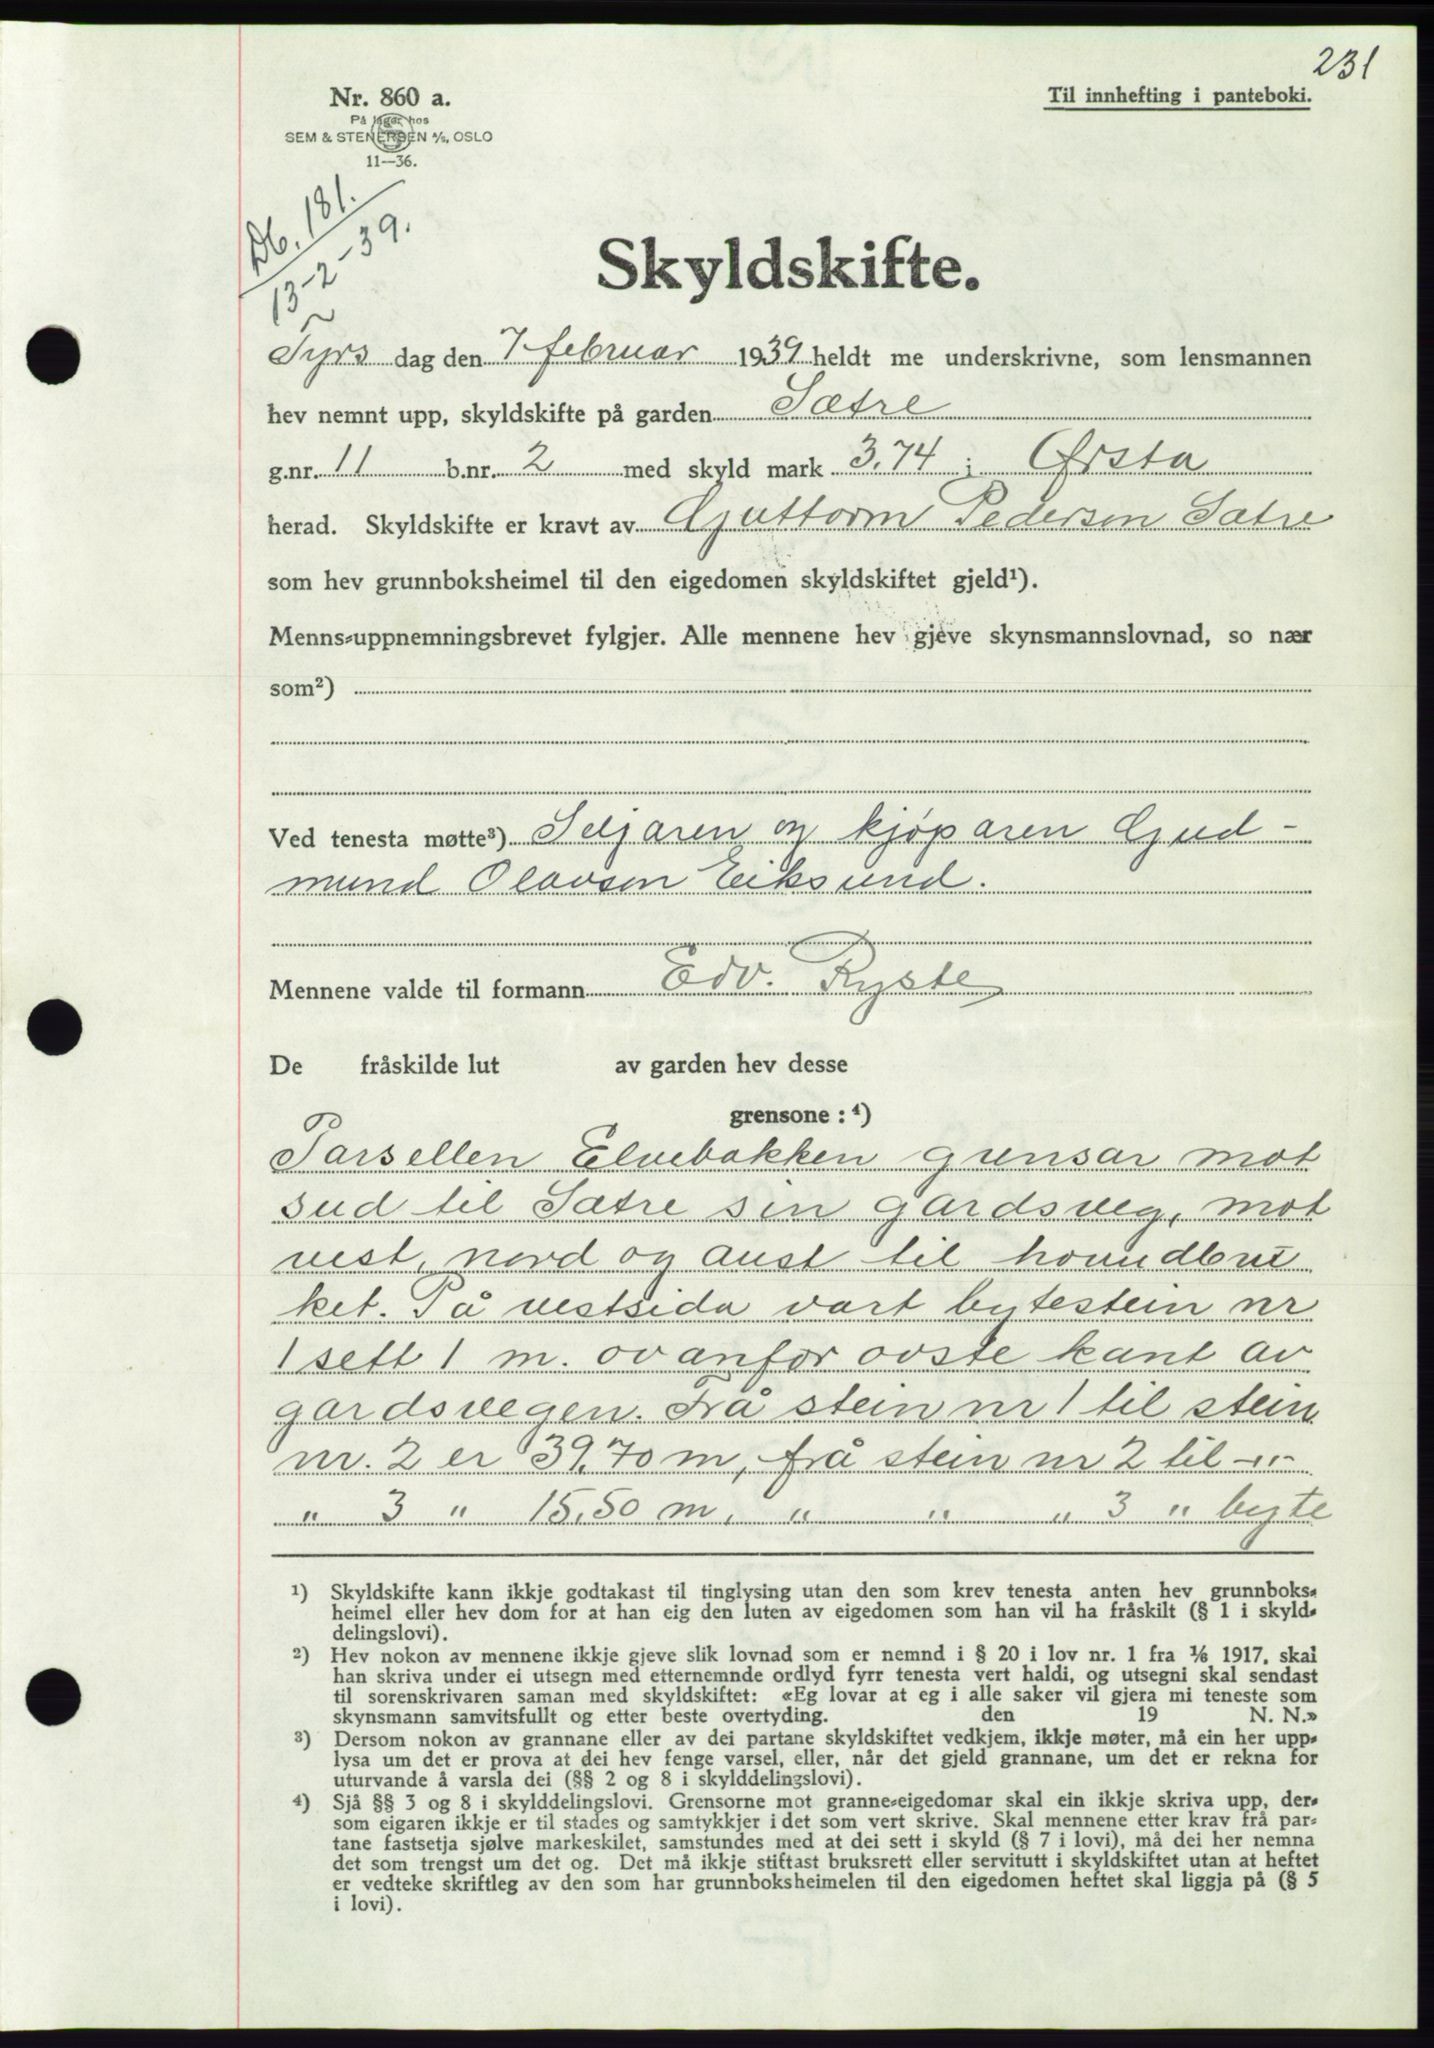 231
Nr. 860 a.
Til innhefting i panteboki.
På lager hos
SEM & STENERSEN A/S, OSLO
11—36.
Db. 181.
13-2-39.
Skyldskifte.
Tyrs dag den 7 februar 1939 heldt me underskrivne, som lensmannen
hev nemnt upp, skyldskifte på garden Sætre
g.nr. 11 b.nr. 2 med skyld mark 3,74 i Ørsta
herad. Skyldskifte er kravt av Guttorm Pederson Sætre
som hev grunnboksheimel til den eigedomen skyldskiftet gjeld¹).
Menns-uppnemningsbrevet fylgjer. Alle mennene hev gjeve skynsmannslovnad, so nær
som²)
Ved tenesta møtte³) Seljaren og kjøparen Gud-
mund Olavson Eiksund.
Mennene valde til formann Edv. Ryste
De fråskilde lut av garden hev desse
grensone: ⁴)
Parsellen Elvebakken grensar mot
sud til Sætre sin gardsveg, mot
vest, nord og aust til hovudbru
ket. På vestsida vart bytestein nr
1 sett 1 m. ovanfor øvste kant av
gardsvegen. Frå stein nr 1 til stein
nr. 2 er 39,70 m, frå stein nr 2 til -"-
" 3 " 15,50 m, " " " 3 " byte
¹) Skyldskifte kann ikkje godtakast til tinglysing utan den som krev tenesta anten hev grunnboks-
heimel eller hev dom for at han eig den luten av eigedomen som han vil ha fråskilt (§ 1 i skyld-
delingslovi).
²) Hev nokon av mennene ikkje gjeve slik lovnad som er nemnd i § 20 i lov nr. 1 fra 1/6 1917, skal
han skriva under ei utsegn med etternemnde ordlyd fyrr tenesta vert haldi, og utsegni skal sendast
til sorenskrivaren saman med skyldskiftet: «Eg lovar at eg i alle saker vil gjera mi teneste som
skynsmann samvitsfullt og etter beste overtyding. den 19 N. N.»
³) Dersom nokon av grannane eller av dei partane skyldskiftet vedkjem, ikkje møter, må ein her upp-
lysa um det er prova at dei hev fenge varsel, eller, når det gjeld grannane, um det er rekna for
uturvande å varsla dei (§§ 2 og 8 i skylddelingslovi).
⁴) Sjå §§ 3 og 8 i skylddelingslovi. Grensorne mot granne-eigedomar skal ein ikkje skriva upp, der-
som eigaren ikkje er til stades og samtykkjer i det som vert skrive. Skal mennene etter krav frå par-
tane fastsetja sjølve markeskilet, samstundes med at dei sett i skyld (§ 7 i lovi), må dei her nemna
det som trengst um det og. Det må ikkje stiftast bruksrett eller servitutt i skyldskiftet utan at heftet
er vedteke skriftleg av den som har grunnboksheimelen til den eigedomen heftet skal liggja på (§ 5
i lovi).